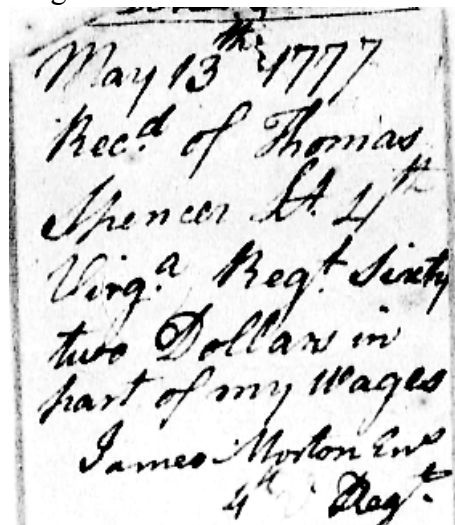 May 13th 1777
Rec.d of Thomas
Spencer Lt. 4th
Virg.a Regt Sixty
two Dollars in
part of my Wages
James Morton Ens
4th Regt.